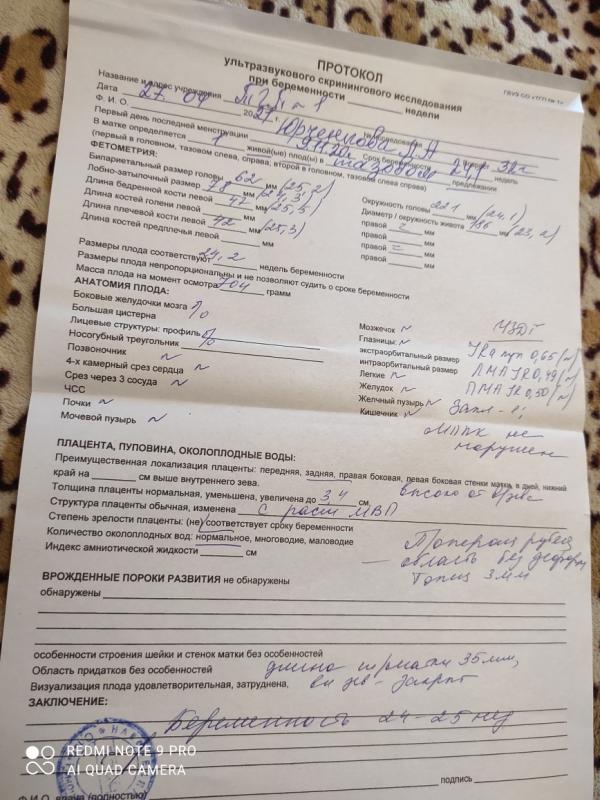 ПРОТОКОЛ
ультразвукового скринингового исследования
при беременности ________ недели
Название и адрес учреждения
Дата 27. 04 20 г.
Ф. И. О. Юрченкова А
Первый день последней менструации Срок беременности 24,1 недель
В матке определяется 1 живой(ые) плод(ы) в тазовом предлежании
(первый в головном, тазовом слева, справа; второй в головном, тазовом слева справа)
ФЕТОМЕТРИЯ:
Бипариетальный размер головы 62 мм (25,2)
Лобно-затылочный размер 78 мм
Длина бедренной кости левой 47 мм (25,5)
Длина костей голени левой мм
Длина плечевой кости левой 42 мм (25,3)
Длина костей предплечья левой мм
Окружность головы 221 мм (24,1)
Диаметр / окружность живота 186 мм (23,2)
правой мм
правой мм
правой мм
правой мм
Размеры плода соответствуют 24,2 недель беременности
Размеры плода непропорциональны и не позволяют судить о сроке беременности
Масса плода на момент осмотра 704 грамм
АНАТОМИЯ ПЛОДА:
Боковые желудочки мозга
Большая цистерна
Лицевые структуры: профиль
Носогубный треугольник
Позвоночник N
4-х камерный срез сердца N
Срез через 3 сосуда N
ЧСС
Почки N
Мочевой пузырь N
Мозжечок N
Глазницы N
экстраорбитальный размер
интраорбитальный размер
Легкие N
Желудок N
Желчный пузырь N
Кишечник N
УЗДГ
IR а пуп 0,65 (N)
ЛМА IR 0,49 (N)
ПМА IR 0,50 (N)
МППК не
нарушен
ПЛАЦЕНТА, ПУПОВИНА, ОКОЛОПЛОДНЫЕ ВОДЫ:
Преимущественная локализация плаценты: передняя, задняя, правая боковая, левая боковая стенки матки, в дней, нижний
край на ________ см выше внутреннего зева. высоко от в/зева
Толщина плаценты нормальная, уменьшена, увеличена до 3,4 см
Структура плаценты обычная, изменена с расш МВП
Степень зрелости плаценты: (не) соответствует сроку беременности
Количество околоплодных вод: нормальное, многоводие, маловодие
Индекс амниотической жидкости ________ см
область без
3 мм
ВРОЖДЕННЫЕ ПОРОКИ РАЗВИТИЯ не обнаружены
обнаружены
особенности строения шейки и стенок матки без особенностей
Область придатков без особенностей длина ш/матки 35 мм,
Визуализация плода удовлетворительная, затруднена, вн зев - закрыт
ЗАКЛЮЧЕНИЕ:
Беременность 24-25 нед
подпись
Ф.И.О. врача (полностью)
REDMI NOTE 9 PRO
AI QUAD CAMERA